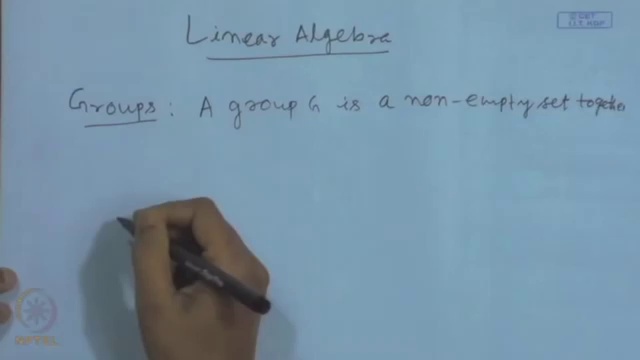 © CET
I.I.T. KGP
Linear Algebra
Groups : A group G is a non-empty set together
NPTEL